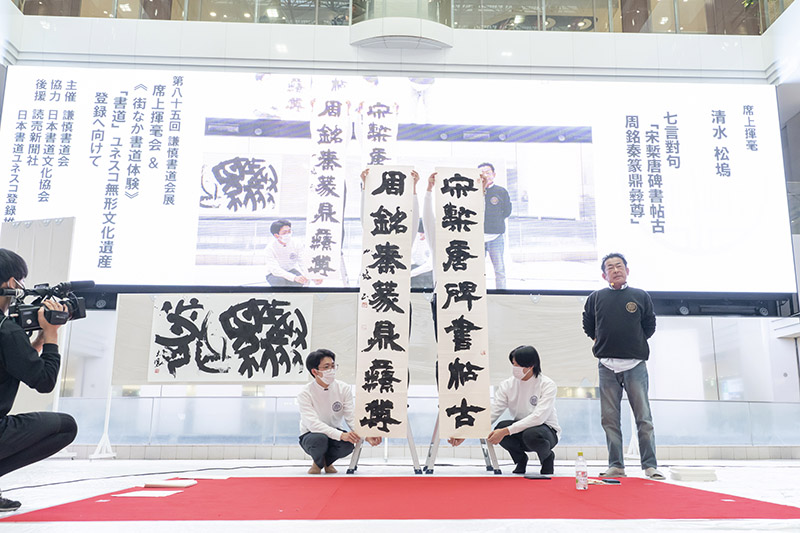 席上揮毫
清水 松塢
七言對句
「宋槧唐碑書帖古
周銘秦篆鼎彝尊」
第八十五回 謙慎書道会展
席上揮毫会 &
《街なか書道体験》
「書道」ユネスコ無形文化遺産
登録へ向けて
主催 謙慎書道会
協力 日本書道文化協会
後援 読売新聞社
日本書道ユネスコ登録推
宋槧唐碑書帖古
周銘秦篆鼎彝尊